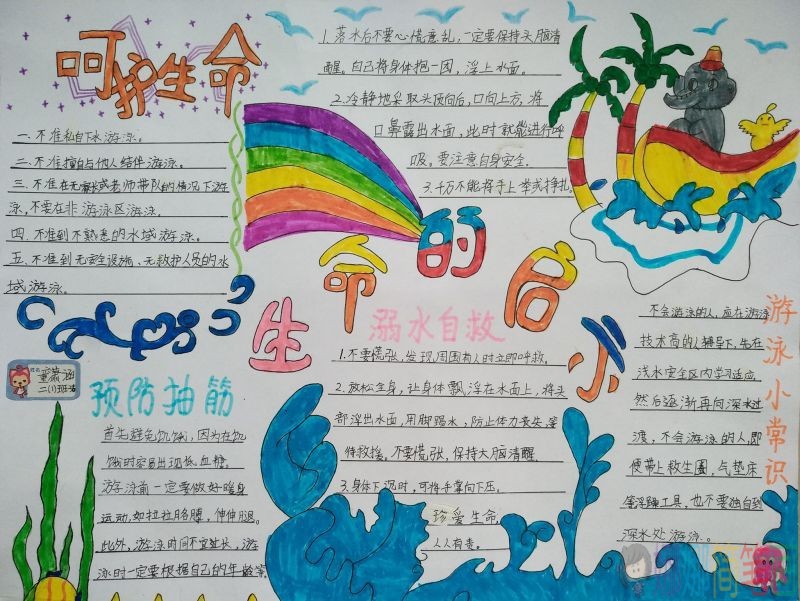 呵护生命
一.不准私自下水游泳。
二.不准擅自与他人结伴游泳。
三.不准在无家长或老师带队的情况下游
泳,不要在非游泳区游泳
四.不准到不熟悉的水域游泳。
五.不准到无安全设施、无救护人员的水
域游泳。
1.落水后不要心慌意乱,一定要保持头脑清
醒。自己将身体抱一团,浮上水面。
2.冷静地采取头顶向后,口向上方,将
口鼻露出水面,此时就能进行呼
吸。要注意自身安全.
3.千万不能将手上举或挣扎
生命的启示
二(1)班
预防抽筋
首先避免饥饿,因为在饥
饿时容易出现低血糖。
游泳前一定要做好暖身
运动,如拉拉胳膊,伸伸腿。
此外,游泳时间不宜过长,游
泳时一定要根据自己的年龄等
溺水自救
1.不要慌张,发现周围有人时立即呼救。
2.放松全身,让身体飘浮在水面上,将头
部浮出水面,用脚踢水,防止体力丧失,等
待救援。不要慌张,保持大脑清醒.
3.身体下沉时,可将手掌向下压。
珍爱生命,
人人有责。
游泳小常识
不会游泳的人,应在游泳
技术高的人辅导下,先在
浅水安全区内学习适应,
然后逐渐再向深水过
渡,不会游泳的人即
便带上救生圈,气垫床
等浮躺工具,也不要独自到
深水处游泳.。
简笔